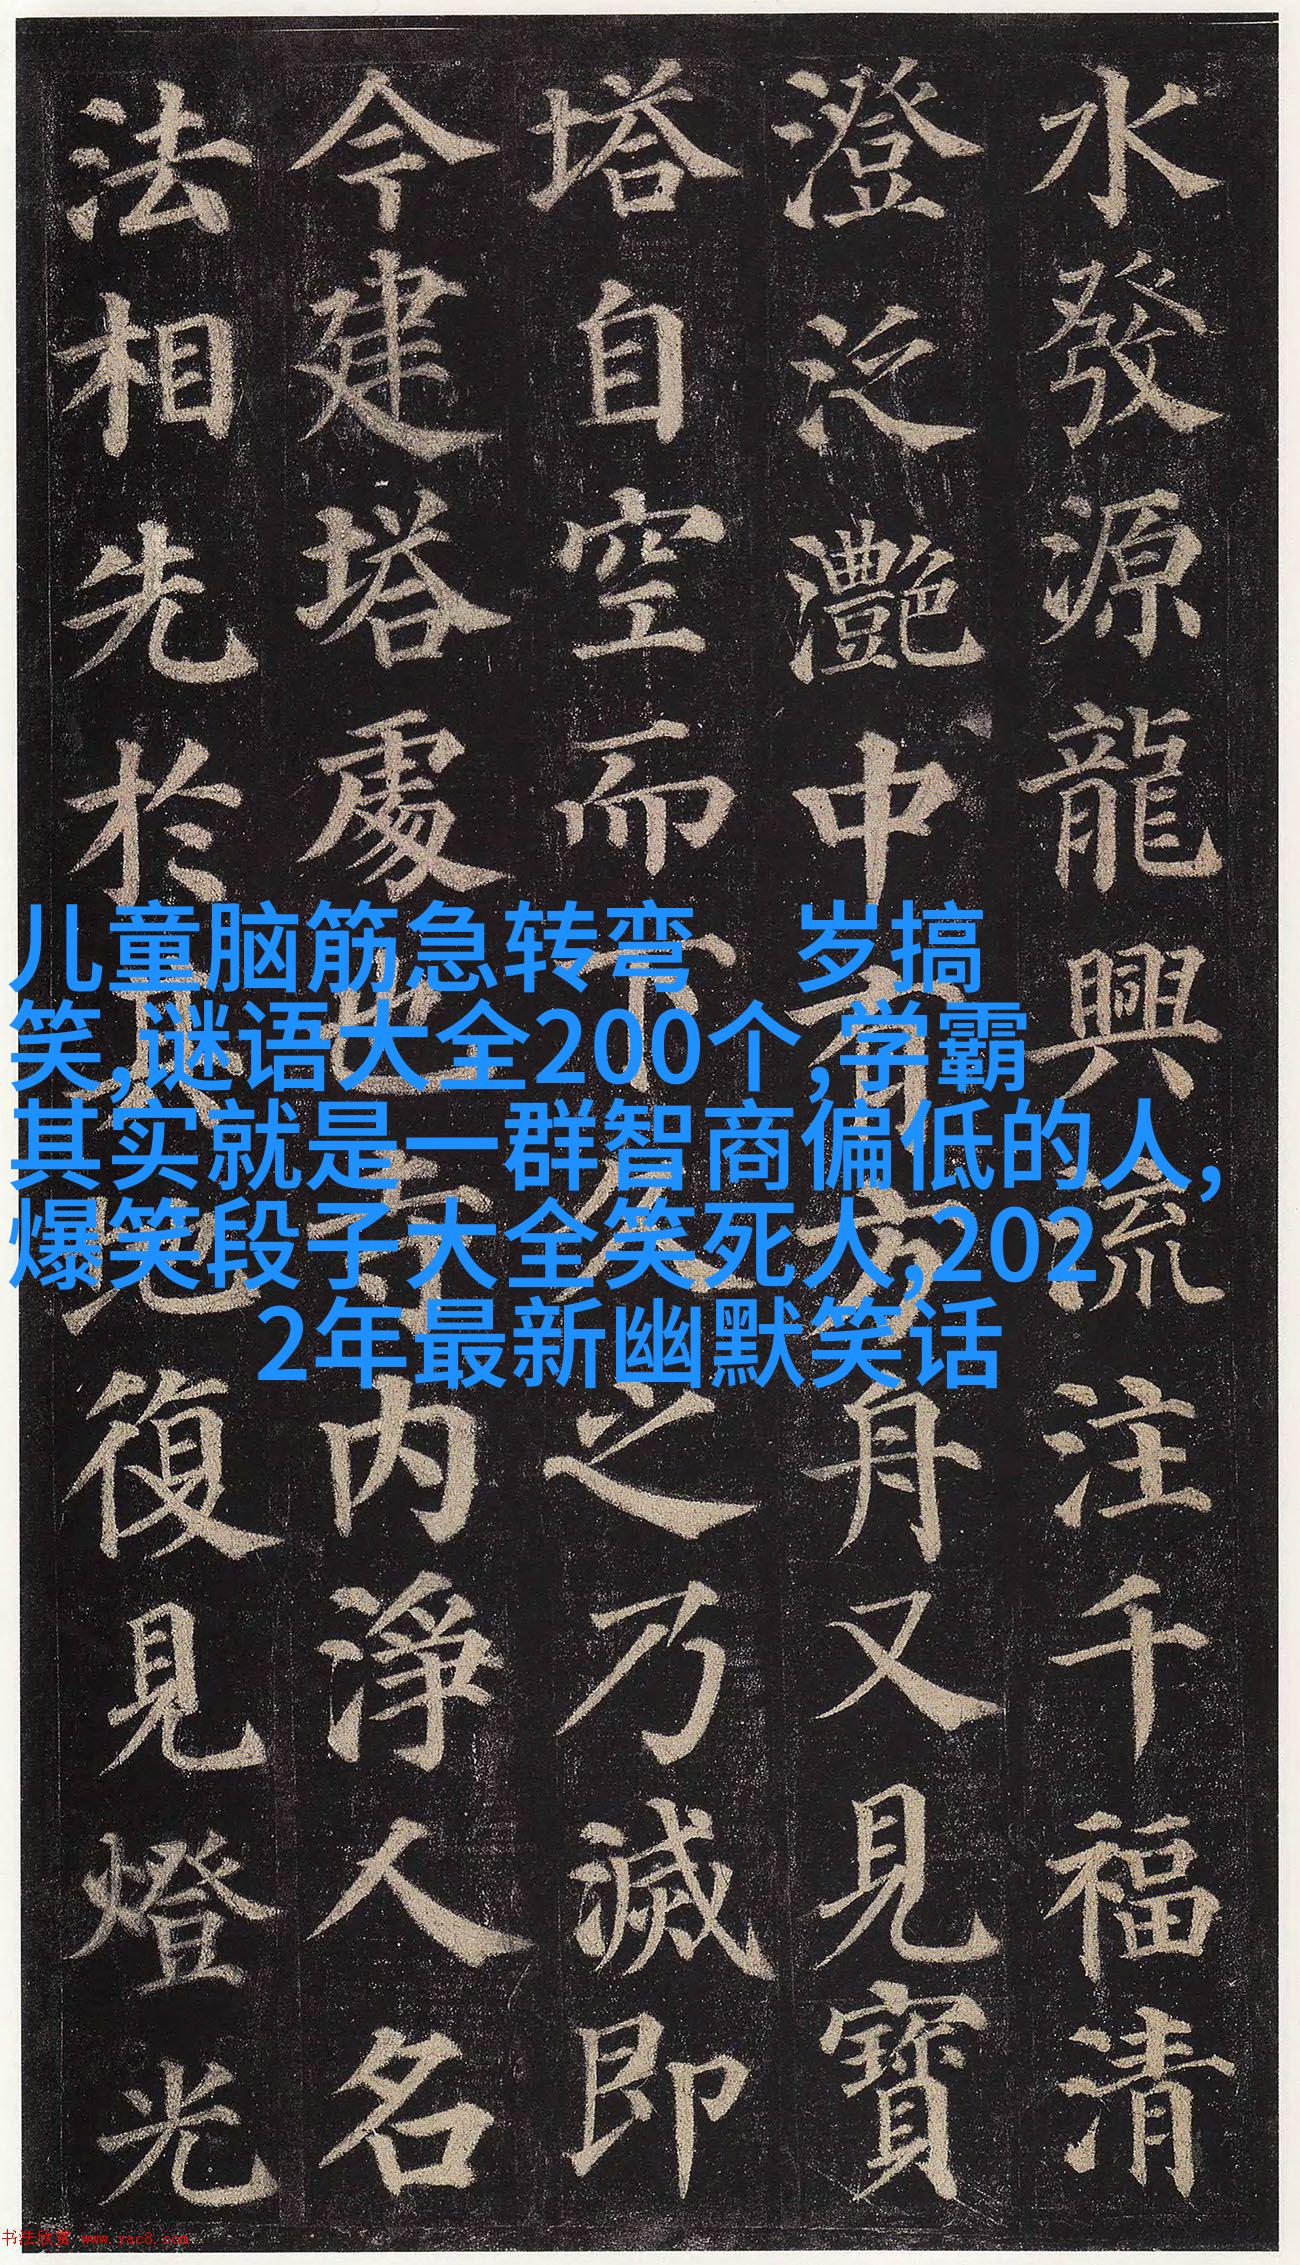 水發源龍興流注千福清
澄泛灩中有方舟又見寶
塔自空而下久之乃滅即
今建塔處也寺内淨人名
法相先於其地復見燈光
儿童脑筋急转弯 岁搞
笑,谜语大全200个,学霸
其实就是一群智商偏低的人,
爆笑段子大全笑死人,202
2年最新幽默笑话
书法欣赏 www.yac8.com